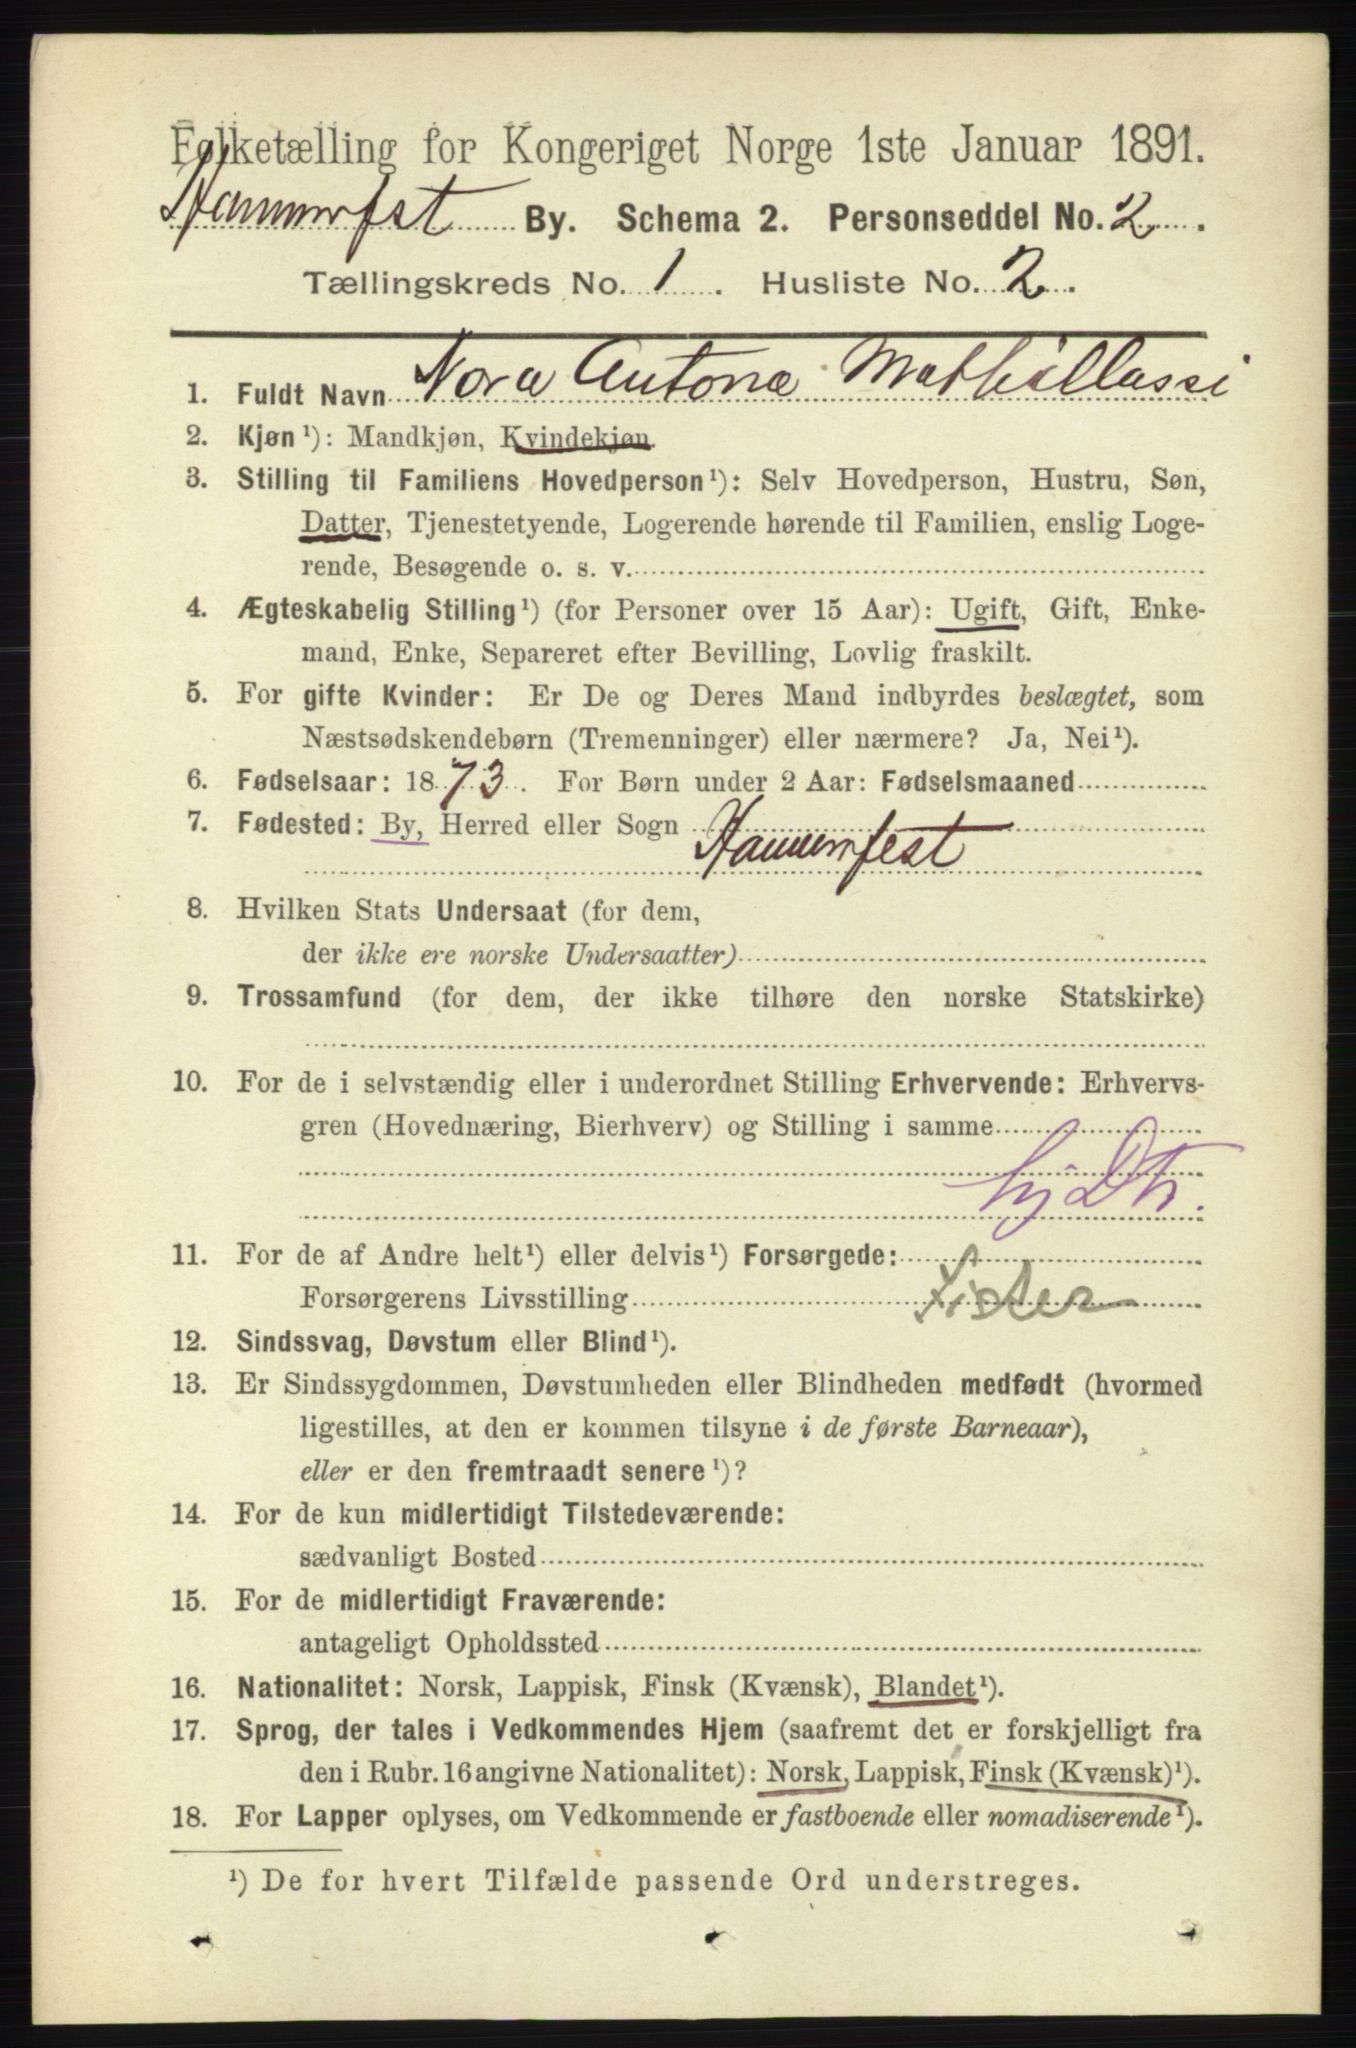 Folketælling for Kongeriget Norge 1ste Januar 1891.
Hammerfest By. Schema 2. Personseddel No. 2.
Tællingskreds No. 1. Husliste No. 2.
1. Fuldt Navn Nora Antona
2. Kjøn¹): Mandkjøn, Kvindekjøn.
3. Stilling til Familiens Hovedperson¹): Selv Hovedperson, Hustru, Søn,
Datter, Tjenestetyende, Logerende hørende til Familien, enslig Loge-
rende, Besøgende o. s. v.
4. Ægteskabelig Stilling¹) (for Personer over 15 Aar): Ugift, Gift, Enke-
mand, Enke, Separeret efter Bevilling, Lovlig fraskilt.
5. For gifte Kvinder: Er De og Deres Mand indbyrdes beslægtet, som
Næstsødskendebørn (Tremenninger) eller nærmere? Ja, Nei¹).
6. Fødselsaar: 1873. For Børn under 2 Aar: Fødselsmaaned
7. Fødested: By, Herred eller Sogn
Hammerfest
8. Hvilken Stats Undersaat (for dem,
der ikke ere norske Undersaatter)
9. Trossamfund (for dem, der ikke tilhøre den norske Statskirke)
10. For de i selvstændig eller i underordnet Stilling Erhvervende: Erhvervs-
gren (Hovednæring, Bierhverv) og Stilling i samme
hj Dtr.
11. For de af Andre helt¹) eller delvis¹) Forsørgede:
Forsørgerens Livsstilling Fisker
12. Sindssvag, Døvstum eller Blind¹).
13. Er Sindssygdommen, Døvstumheden eller Blindheden medfødt (hvormed
ligestilles, at den er kommen tilsyne i de første Barneaar),
eller er den fremtraadt senere¹)?
14. For de kun midlertidigt Tilstedeværende:
sædvanligt Bosted
15. For de midlertidigt Fraværende:
antageligt Opholdssted
16. Nationalitet: Norsk, Lappisk, Finsk (Kvænsk), Blandet¹).
17. Sprog, der tales i Vedkommendes Hjem (saafremt det er forskjelligt fra
den i Rubr. 16 angivne Nationalitet): Norsk, Lappisk, Finsk (Kvænsk)¹).
18. For Lapper oplyses, om Vedkommende er fastboende eller nomadiserende¹).
¹) De for hvert Tilfælde passende Ord understreges.